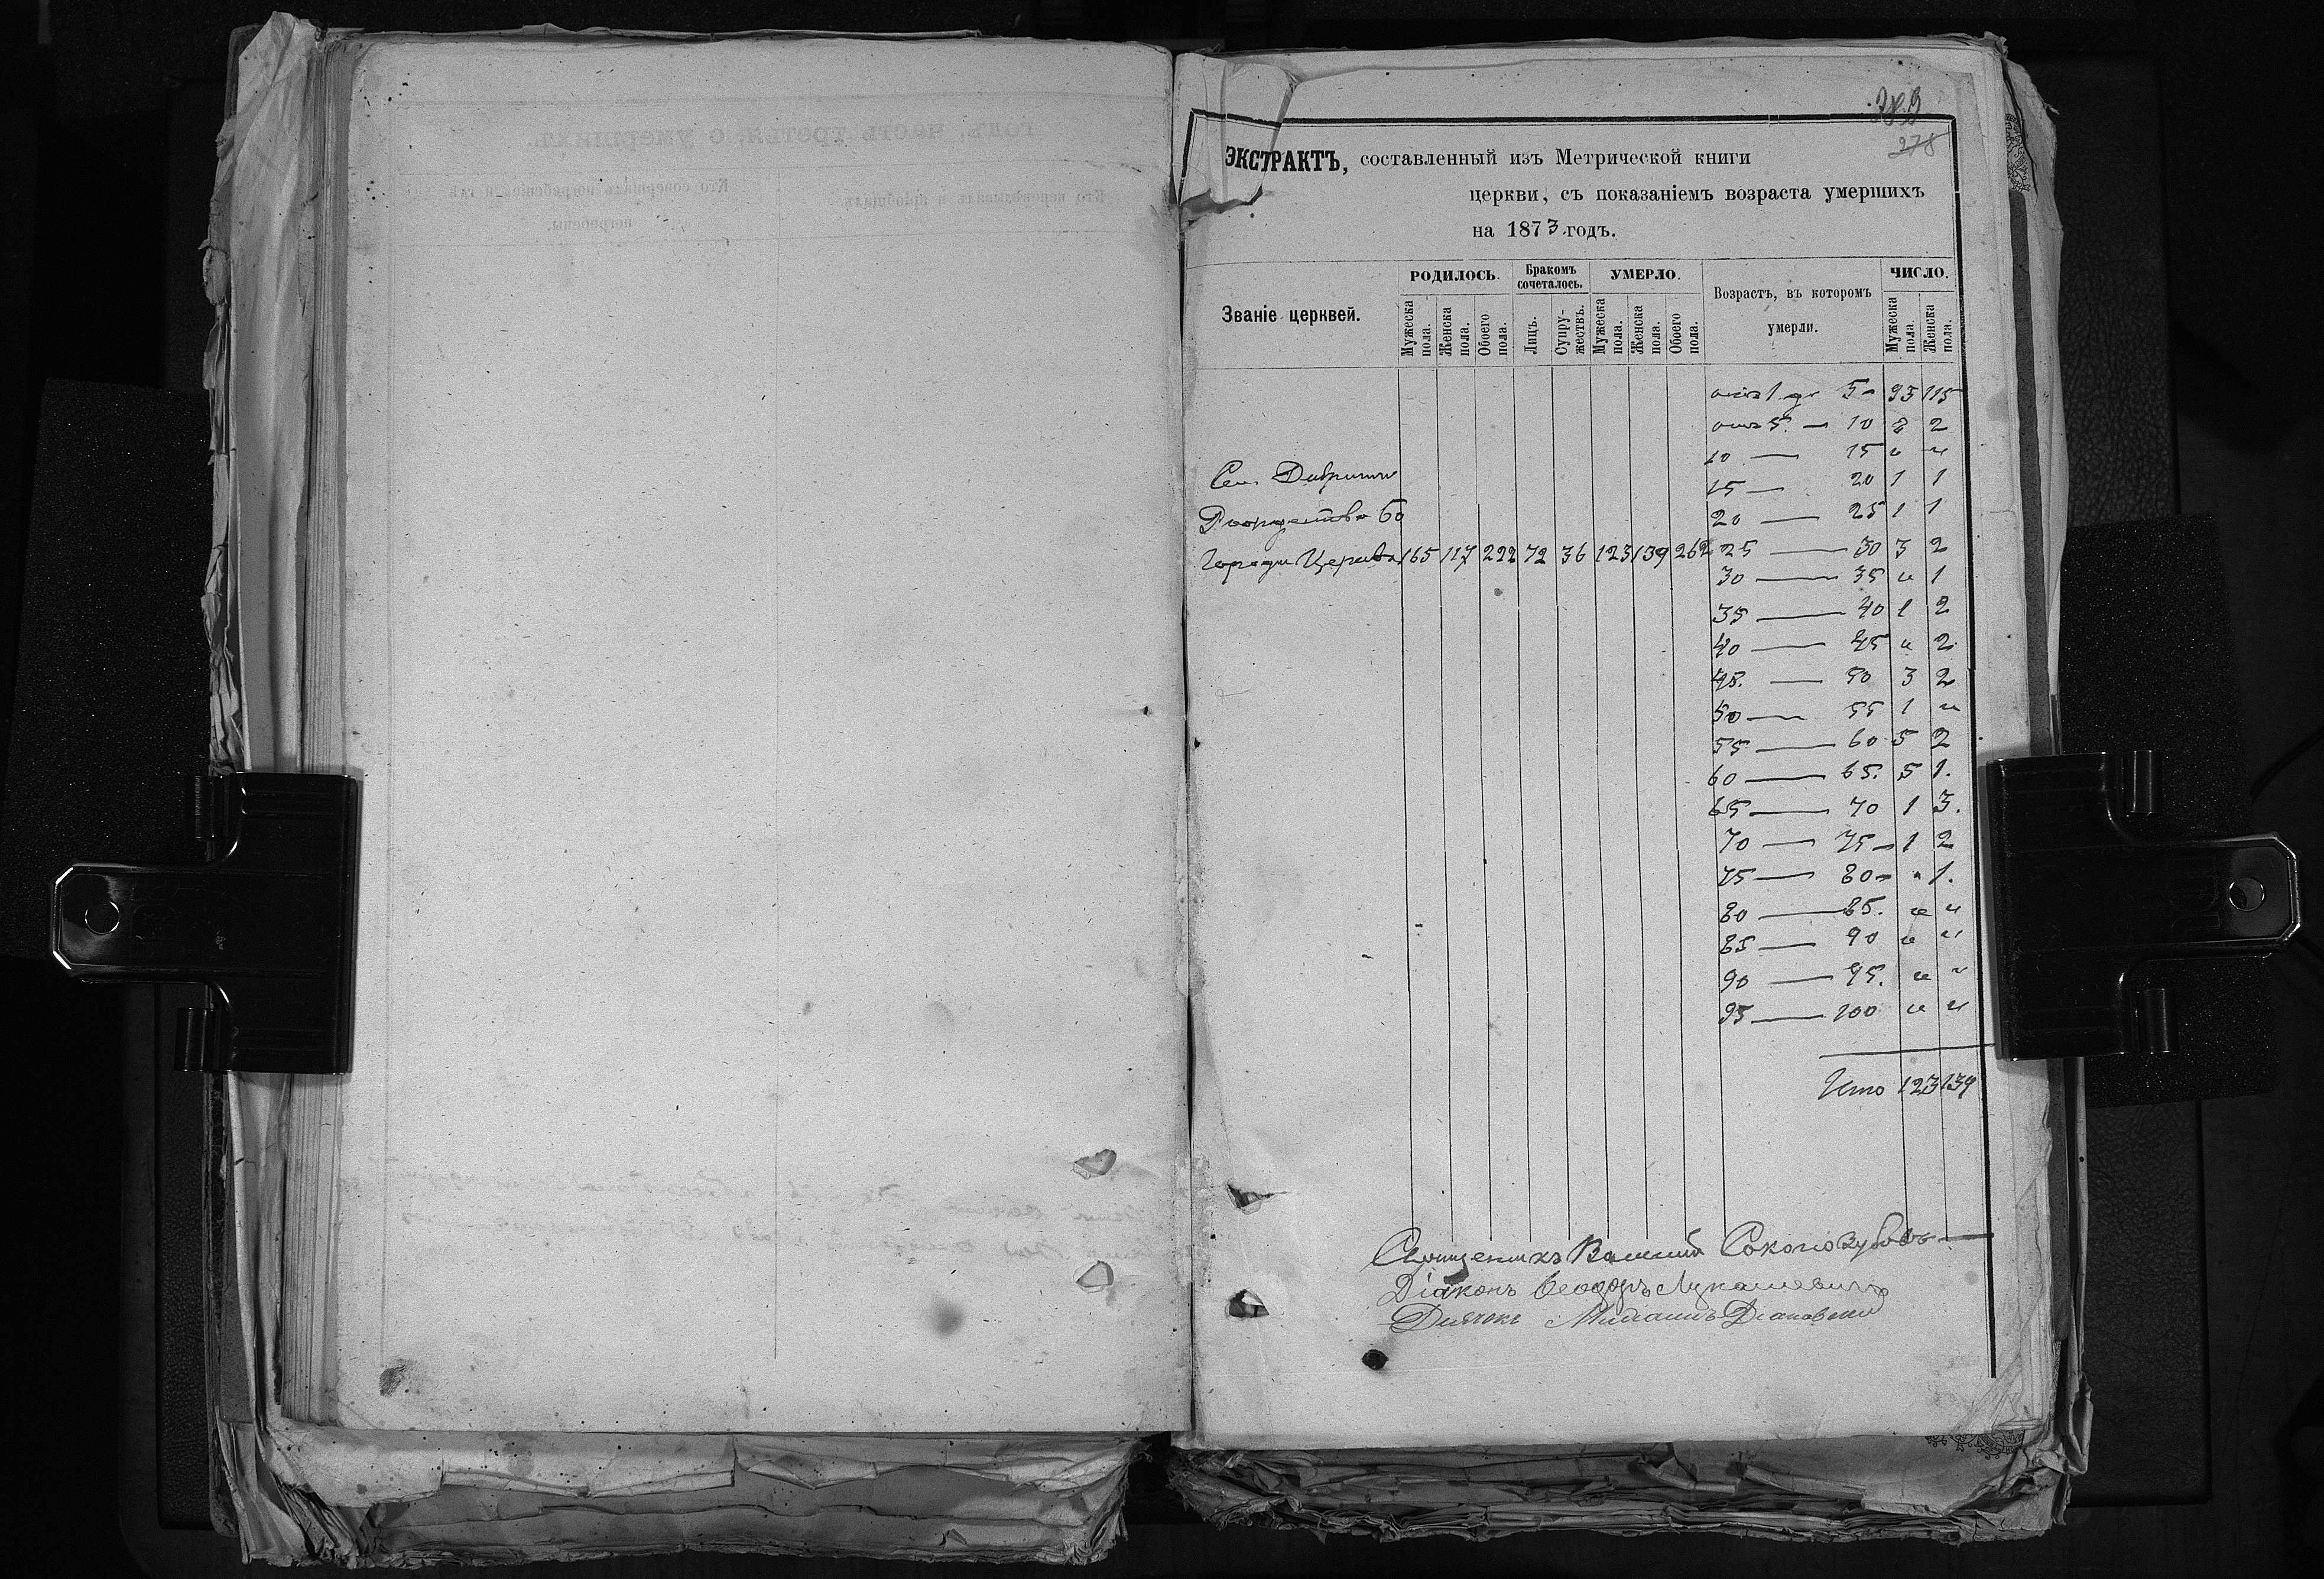 278
ЭКСТРАКТЪ, составленный изъ Метрической книги
церкви, съ показаніемъ возраста умершихъ
на 1873 годъ.
Званіе церквей.
РОДИЛОСЬ.
Мужеска пола.
Женска пола.
Обоего пола.
Бракомъ сочеталось.
Лицъ.
Супружествъ.
УМЕРЛО.
Мужеска пола.
Женска пола.
Обоего пола.
Возрастъ, въ которомъ
умерли.
ЧИСЛО.
Мужеска пола.
Женска пола.
Сел.
Рождества Бо
городи Церква 165 117 282 72 36 123 139 262
отъ 1 до 5 93 115
отъ 5. — 10 8 2
10 — 15 " "
15 — 20 1 1
20 — 25 1 1
25 — 30 3 2
30 — 35 " 1
35 — 40 1 2
40 — 45 " 2
45. — 50 3 2
50 — 55 1 "
55 — 60 5 2
60 — 65. 5 1.
65 — 70 1 3.
70 — 75 — 1 2
75 — 80 - " 1.
80 — 85. " "
85 — 90 " "
90 — 95. " "
95 — 100 " "
Итого 123 139
Священникъ Василій Сокологубовъ
Діаконъ Ѳеодоръ Лукашевичъ
Дьячекъ Михаилъ Діаковскій
годъ, часть третья, о умершихъ.
Кто совершалъ погребеніе и гдѣ
погребены.
Кто исповѣдывалъ и пріобщалъ.